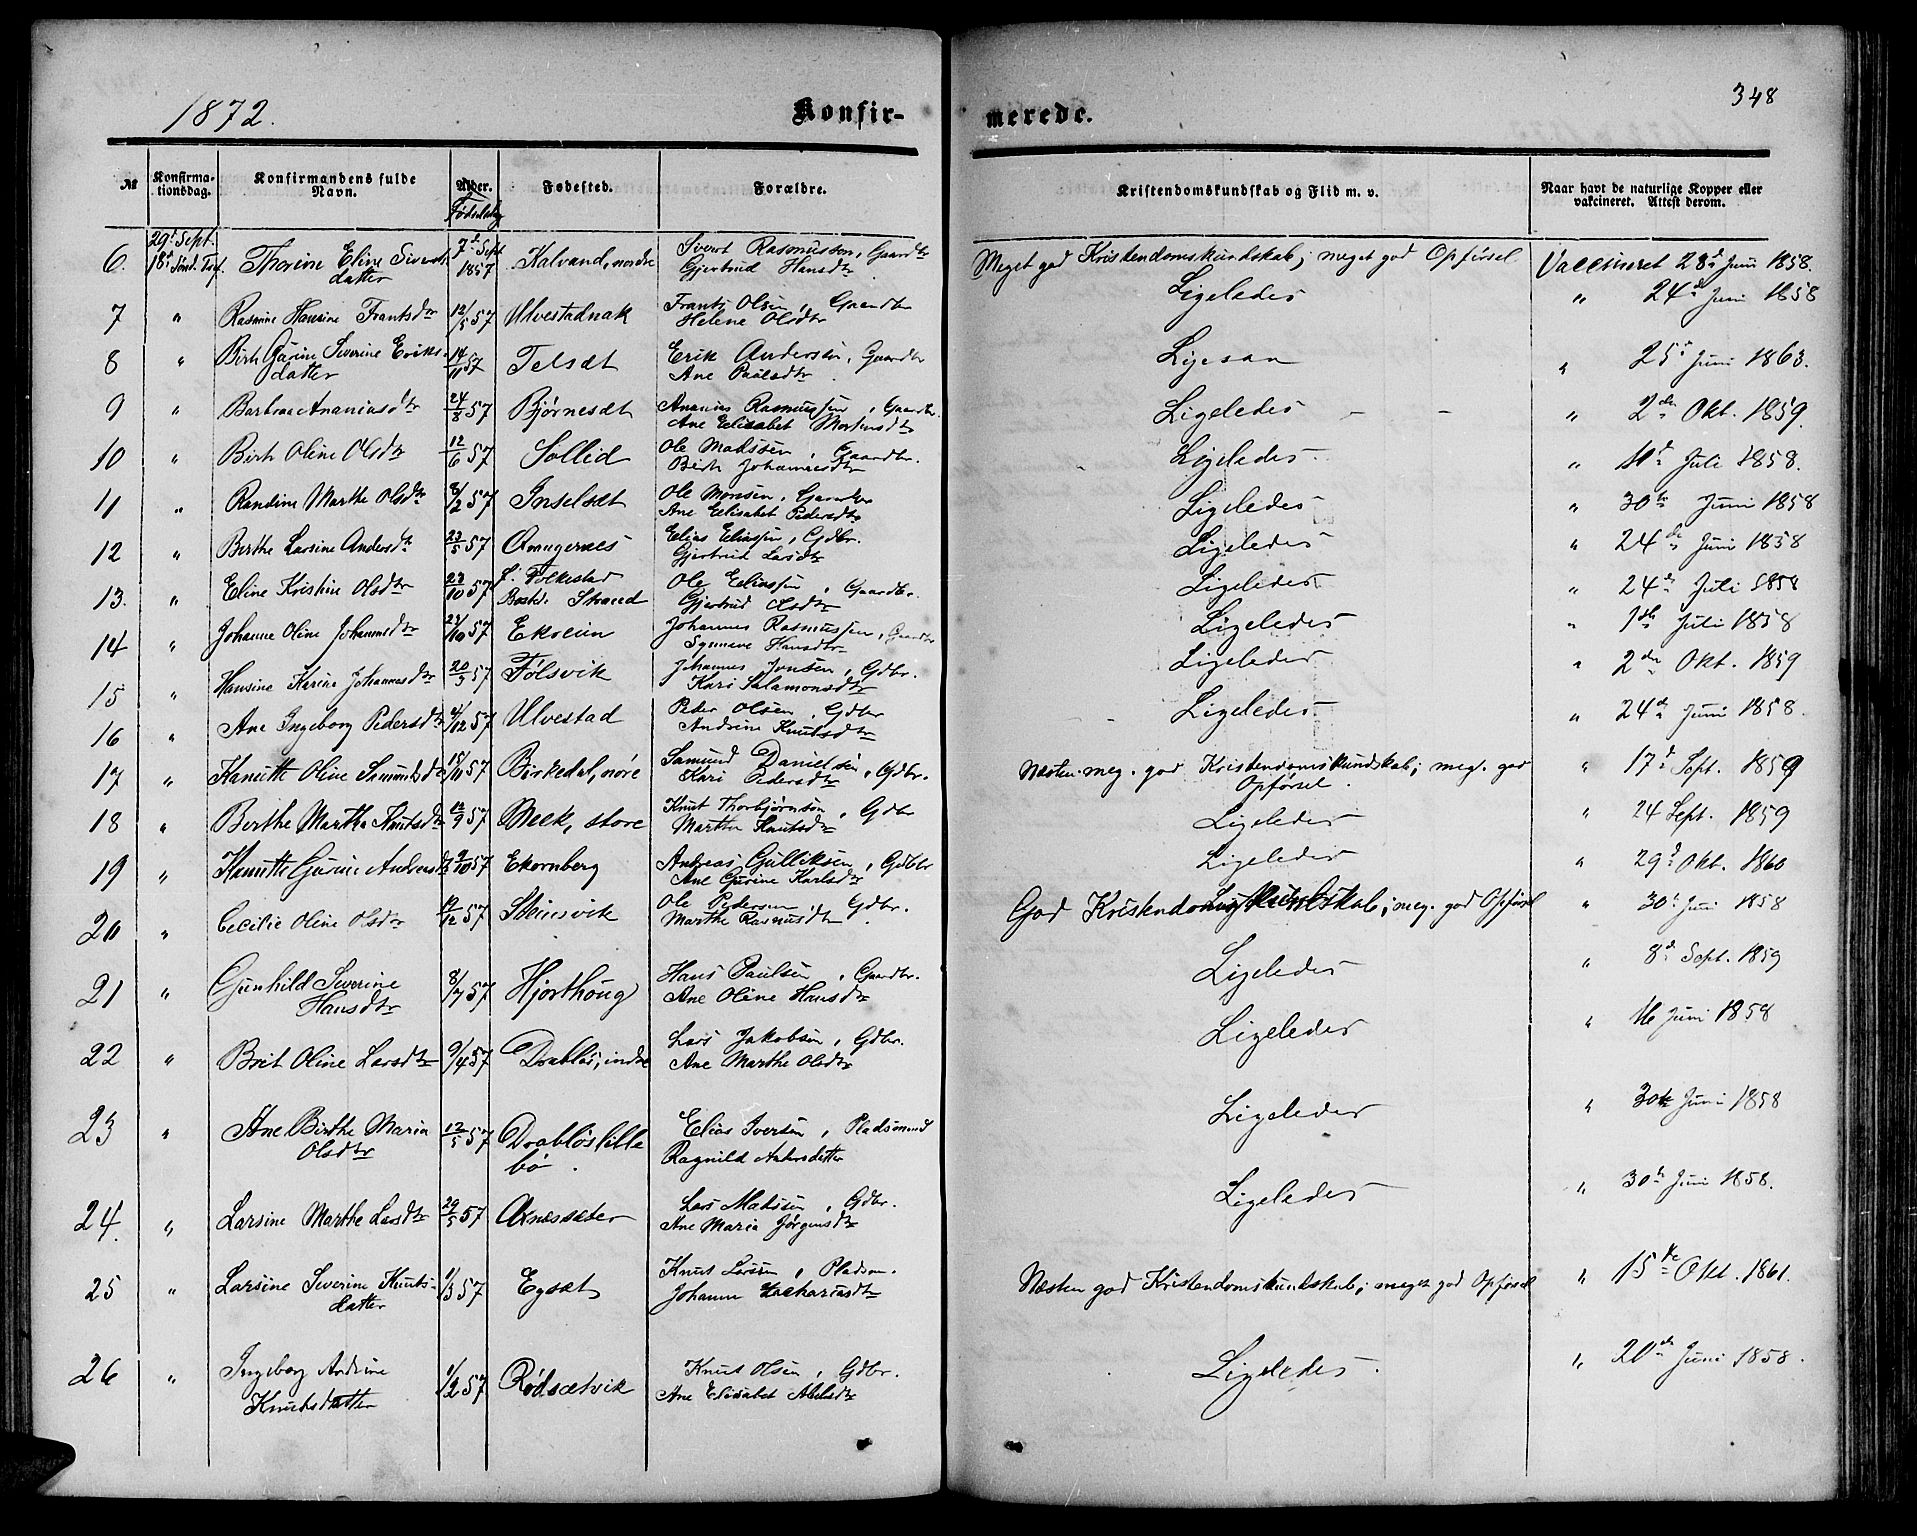 1872.
Konfir-
merede.
348
№
Konfirma-
tionsdag.
Konfirmandens fulde
Navn.
Alder.
Fødselsdag
Fødested.
Forældre.
Kristendomskundskab og Flid m. v.
Naar havt de naturlige Kopper eller
vakcineret. Attest derom.
29d Sept.
6. 18d Sønd. Tref. Thorine Eline Siverts-
datter
7d Sept
1857
Kalvand, nordre
Sivert Rasmussen, Gaardbr
Gjertrud Hansdtr
Meget god Kristendomskundskab; meget god Opførsel
Vaccineret 28d Juni 1858.
7 " Rasmine Hansine Frantsdtr 12/5 57 Ulvestadnak
Frants Olsen, Gaardbr
Helene Olsdtr
Ligeledes
" 24d Juni 1858
8 " Birth Gurine Severine Eriks-
datter
14/11 57 Telsæt
Erik Andersen, Gaardbr
Ane Paulsdtr.
Ligesaa
" 25d Juni 1863.
9 " Barbraa Ananiasdtr 24/8 57 Bjørnesæt
Ananias Rasmussen, Gaardbr.
Ane Elisabet Mortensdtr
Ligeledes - -
" 2den Okt. 1859.
10 " Birth Oline Olsdtr 12/6 57 Sollid
Ole Madssen, Gaardbr.
Birth Johannesdtr
Ligeledes
" 11d Juli 1858.
11 " Randine Marthe Olsdtr 8/2 57 Inselsæt
Ole Monsen, Gaardbr
Ane Elisabet Pedersdtr
Ligeledes
" 30te Juni 1858
12 " Berthe Larsine Andersdtr 23/5 57 Aamgernes
Elias Eliassen, Gdbr.
Gjertrud Larsdtr
Ligeledes
" 24de Juni 1858
13. " Eline Kristine Olsdtr 23/10 57
f. Folkestad
Bostd. Strand
Ole Eliassen, Gaardbr.
Gjertrud Olsdtr
Ligeledes
" 24de Juli 1858
14 " Johanne Oline Johannesdtr 24/10 57 Ekrein
Johannes Rasmussen, Gaardbr
Synneve Hansdtr
Ligeledes
" 1ste Juli 1858
15 " Hansine Karine Johannesdtr 20/5 57 Følsvik
Johannes Jonsen, Gdbr.
Kari Salamonsdtr
Ligeledes
" 2den Okt. 1859
16 " Ane Ingeborg Pedersdtr 4/12 57 Ulvestad
Peder Olsen, Gdbr
Andrine Knutsdtr
Ligeledes
" 24de Juni 1858.
17 " Kanutte Oline Samundsdtr 18/11 57 Birkedal, nøre
Samund Danielsen, Gdbr.
Kari Pedersdtr
Næsten meg. god Kristendomskundskab; meg. god
Opførsel.
" 17d Sept. 1859
18 " Berthe Martha Knutsdtr 12/9 57 Mek, store
Knut Thorbjørnsen, Gdbr
Martha Knutsdtr
Ligeledes
" 24 Sept. 1859
19 " Kanutte Gurine Andreasdtr 9/10 57 Ekornberg
Andreas Gulliksen, Gdbr
Ane Gurine Karlsdtr
Ligeledes
" 29d Okt. 1860
20 " Cecilie Oline Olsdtr 19/12 57 Steinsvik
Ole Pedersen, Gdbr.
Marthe Rasmusdtr.
God Kristendomskundskab; meg. god Opførsel
" 30te Juni 1858
21 " Gunhild Severine
Hansdtr
8/7 57 Hjorthoug
Hans Paulsen, Gaardbr.
Ane Oline Hansdtr
Ligeledes
" 8d Sept. 1859
22 " Brit Oline Larsdtr 9/4 57 Drabløs, indre
Lars Jakobsen, Gdbr.
Ane Marthe Olsdtr
Ligeledes
" 16 Juni 1858
23 " Ane Birthe Maria
Olsdtr
12/5 57 Drabløslille
bø.
Elias Iversen, Pladsmand
Ragnild Andersdatter
Ligeledes
" 30te Juni 1858
24. " Larsine Marthe Larsdtr 29/5 57 Axnesseter
Lars Madsen, Gdbr.
Ane Maria Jørgensdtr
Ligeledes
" 30te Juni 1858.
25 " Larsine Severine Knuts-
datter
1/3 57 Egsæt
Knut Larsen, Pladsm.
Johanne Zachariasdtr
Næsten god Kristendomskundskab; meget god Opførsel
" 15de Okt. 1861.
26 " Ingeborg Andrine
Knutsdatter
1/2 57 Rødsætvik
Knut Olsen, Gdbr.
Ane Elisabet Abelsdtr
Ligeledes.
" 20de Juni 1858.